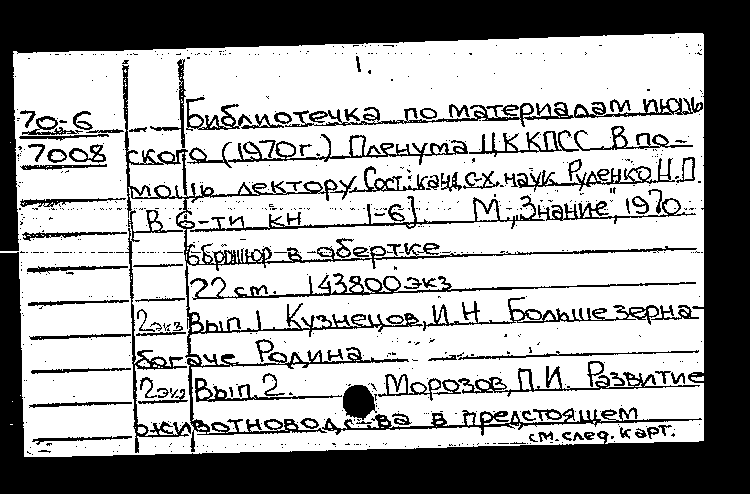 1.
70-6 Библиотечка по материалам июль
7008 ского (1970г.) Пленума ЦК КПСС В по-
мощь лектору. Сост.: канд. с-х. наук Руденко Н.П
[В 6-ти кн 1-6]. М., "Знание", 1970
6 брошюр в обертке
22 см. 143800 экз
2экз Вып.1 Кузнецов, И.Н. Больше зерна-
богаче Родина.
2экз Вып.2. Морозов, П.И. Развитие
животноводства в предстоящем
см. след. карт.